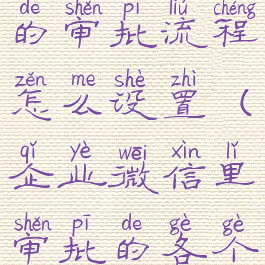 de shěn pī liú chéng
的审批流程
zěn me shè zhì
怎么设置（
qǐ yè wēi xìn lǐ
企业微信里
shěn pī de gè gè
审批的各个